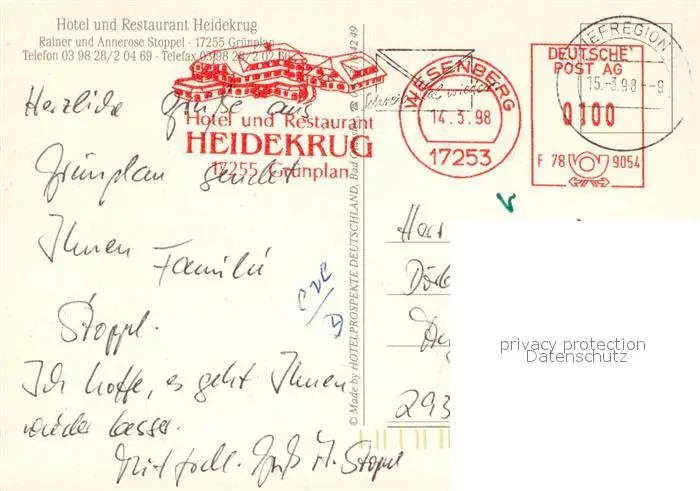 Hotel und Restaurant Heidekrug
Rainer und Annerose Stoppel - 17255 Grünplan
Telefon 03 98 28/2 04 69 - Telefax 03 98 28/2 02 66
Hotel und Restaurant
HEIDEKRUG
17255 Grünplan
Schreib mal wieder
WESENBERG
14.3.98
17253
DEUTSCHE
POST AG
0100
F 78 9054
BRIEFREGION
15.-3.98--9
Herzliche Grüße aus
Grünplan sendet
Ihnen Familie
Stoppel.
Ich hoffe, es geht Ihnen
wieder besser.
Mit frdl. Gruß A. Stoppel
© Made by HOTELPROSPEKTE DEUTSCHLAND, Bad
42 49
Herr
293
privacy protection
Datenschutz